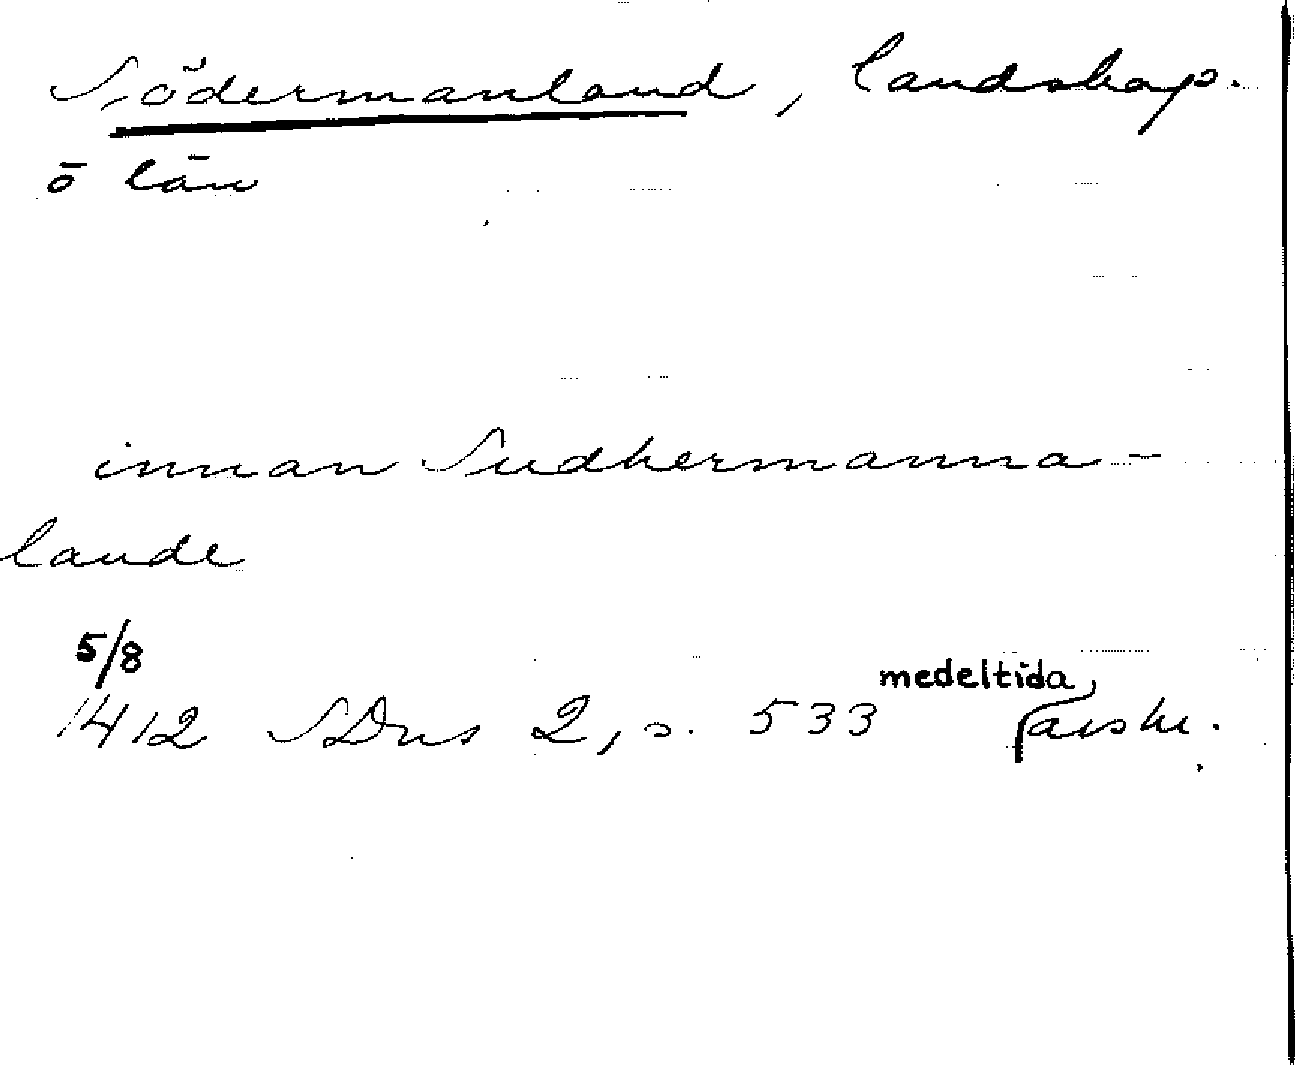 Södermanland, landskap.
o län
innan Sudhermanna-
lande
5/8
1412 SDns 2, s. 533 medeltida avskr.